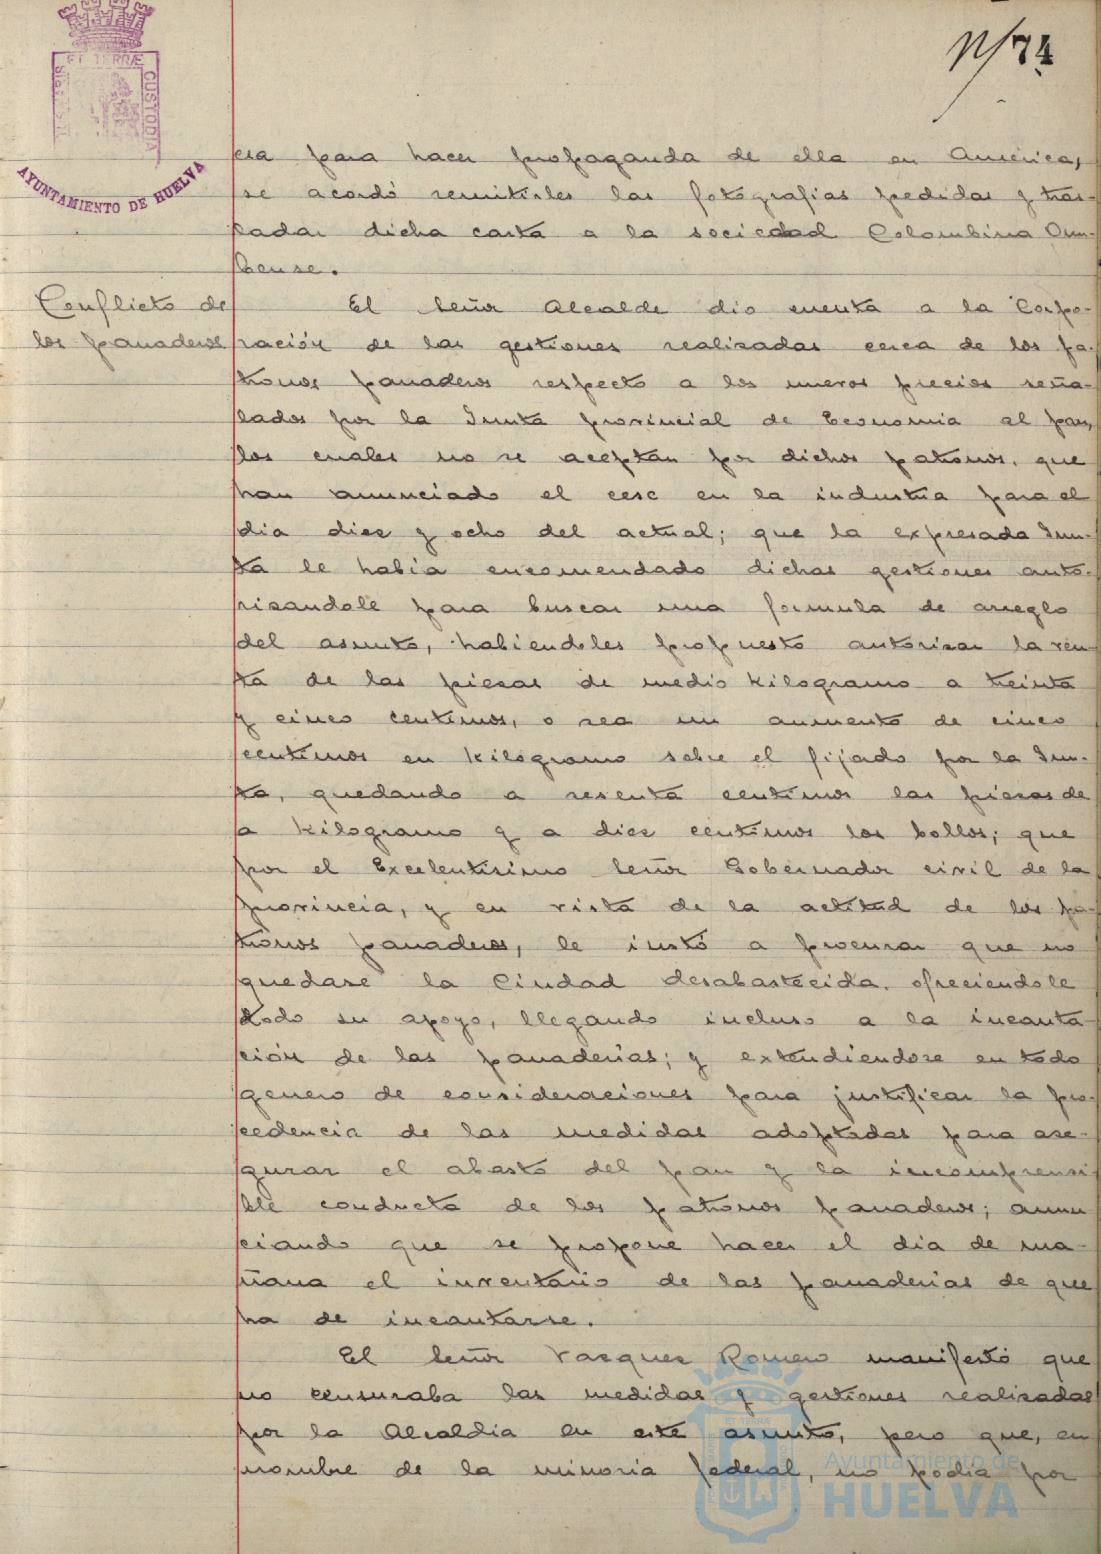 N/74
ET TERRÆ
CUSTODIA
AYUNTAMIENTO DE HUELVA
cia para hacer propaganda de ella en America,
se acordó remitirles las fotografias pedidas y tras-
ladar dicha carta a la sociedad Colombina Onu-
bense.
Conflicto de
los panaderos
El Señor Alcalde dio cuenta a la Corpo-
ración de las gestiones realizadas cerca de los pa-
tronos panaderos respecto a los nuevos precios seña-
lados por la Junta provincial de Economia al pan,
los cuales no se aceptan por dichos patronos, que
han anunciado el cese en la industria para el
dia diez y ocho del actual; que la expresada Jun-
ta le habia encomendado dichas gestiones auto-
rizandole para buscar una formula de arreglo
del asunto, habiendoles propuesto autorizar la ven-
ta de las piezas de medio kilogramo a treinta
y cinco centimos, o sea un aumento de cinco
centimos en kilogramo sobre el fijado por la Jun-
ta, quedando a sesenta centimos las piezas de
a kilogramo y a diez centimos los bollos; que
por el Excelentisimo Señor Gobernador civil de la
provincia, y en vista de la actitud de los pa-
tronos panaderos, le instó a procurar que no
quedase la Ciudad desabastecida, ofreciendole
todo su apoyo, llegando incluso a la incauta-
ción de las panaderias; y extendiendose en todo
genero de consideraciones para justificar la pro-
cedencia de las medidas adoptadas para ase-
gurar el abasto del pan y la incomprensi-
ble conducta de los patronos panaderos; anun
ciando que se propone hacer el dia de ma-
ñana el inventario de las panaderias de que
ha de incautarse.
El Señor Vazquez Romero manifestó que
no censuraba las medidas y gestiones realizadas
por la Alcaldia en este asunto, pero que, en
nombre de la minoria federal, no podia por
Ayuntamiento de
HUELVA